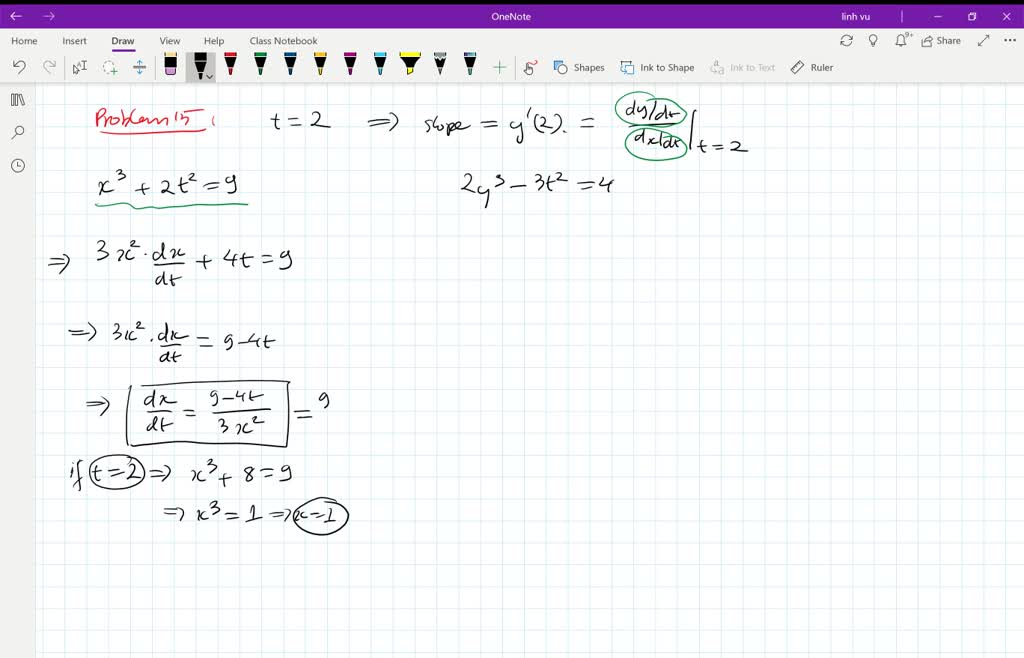 OneNote
linh vu
Home Insert Draw View Help Class Notebook
9+ Share
Shapes Ink to Shape Ink to Text Ruler
Problem 15: t = 2 ⇒ slope = y'(2). = dy/dt / dx/dt | t = 2
x³ + 2t² = 9 2y³ - 3t² = 4
⇒ 3x² · dx/dt + 4t = 9
⇒ 3x² · dx/dt = 9 - 4t
⇒ dx/dt = 9-4t / 3x² = 9
if t = 2 ⇒ x³ + 8 = 9
⇒ x³ = 1 ⇒ x = 1